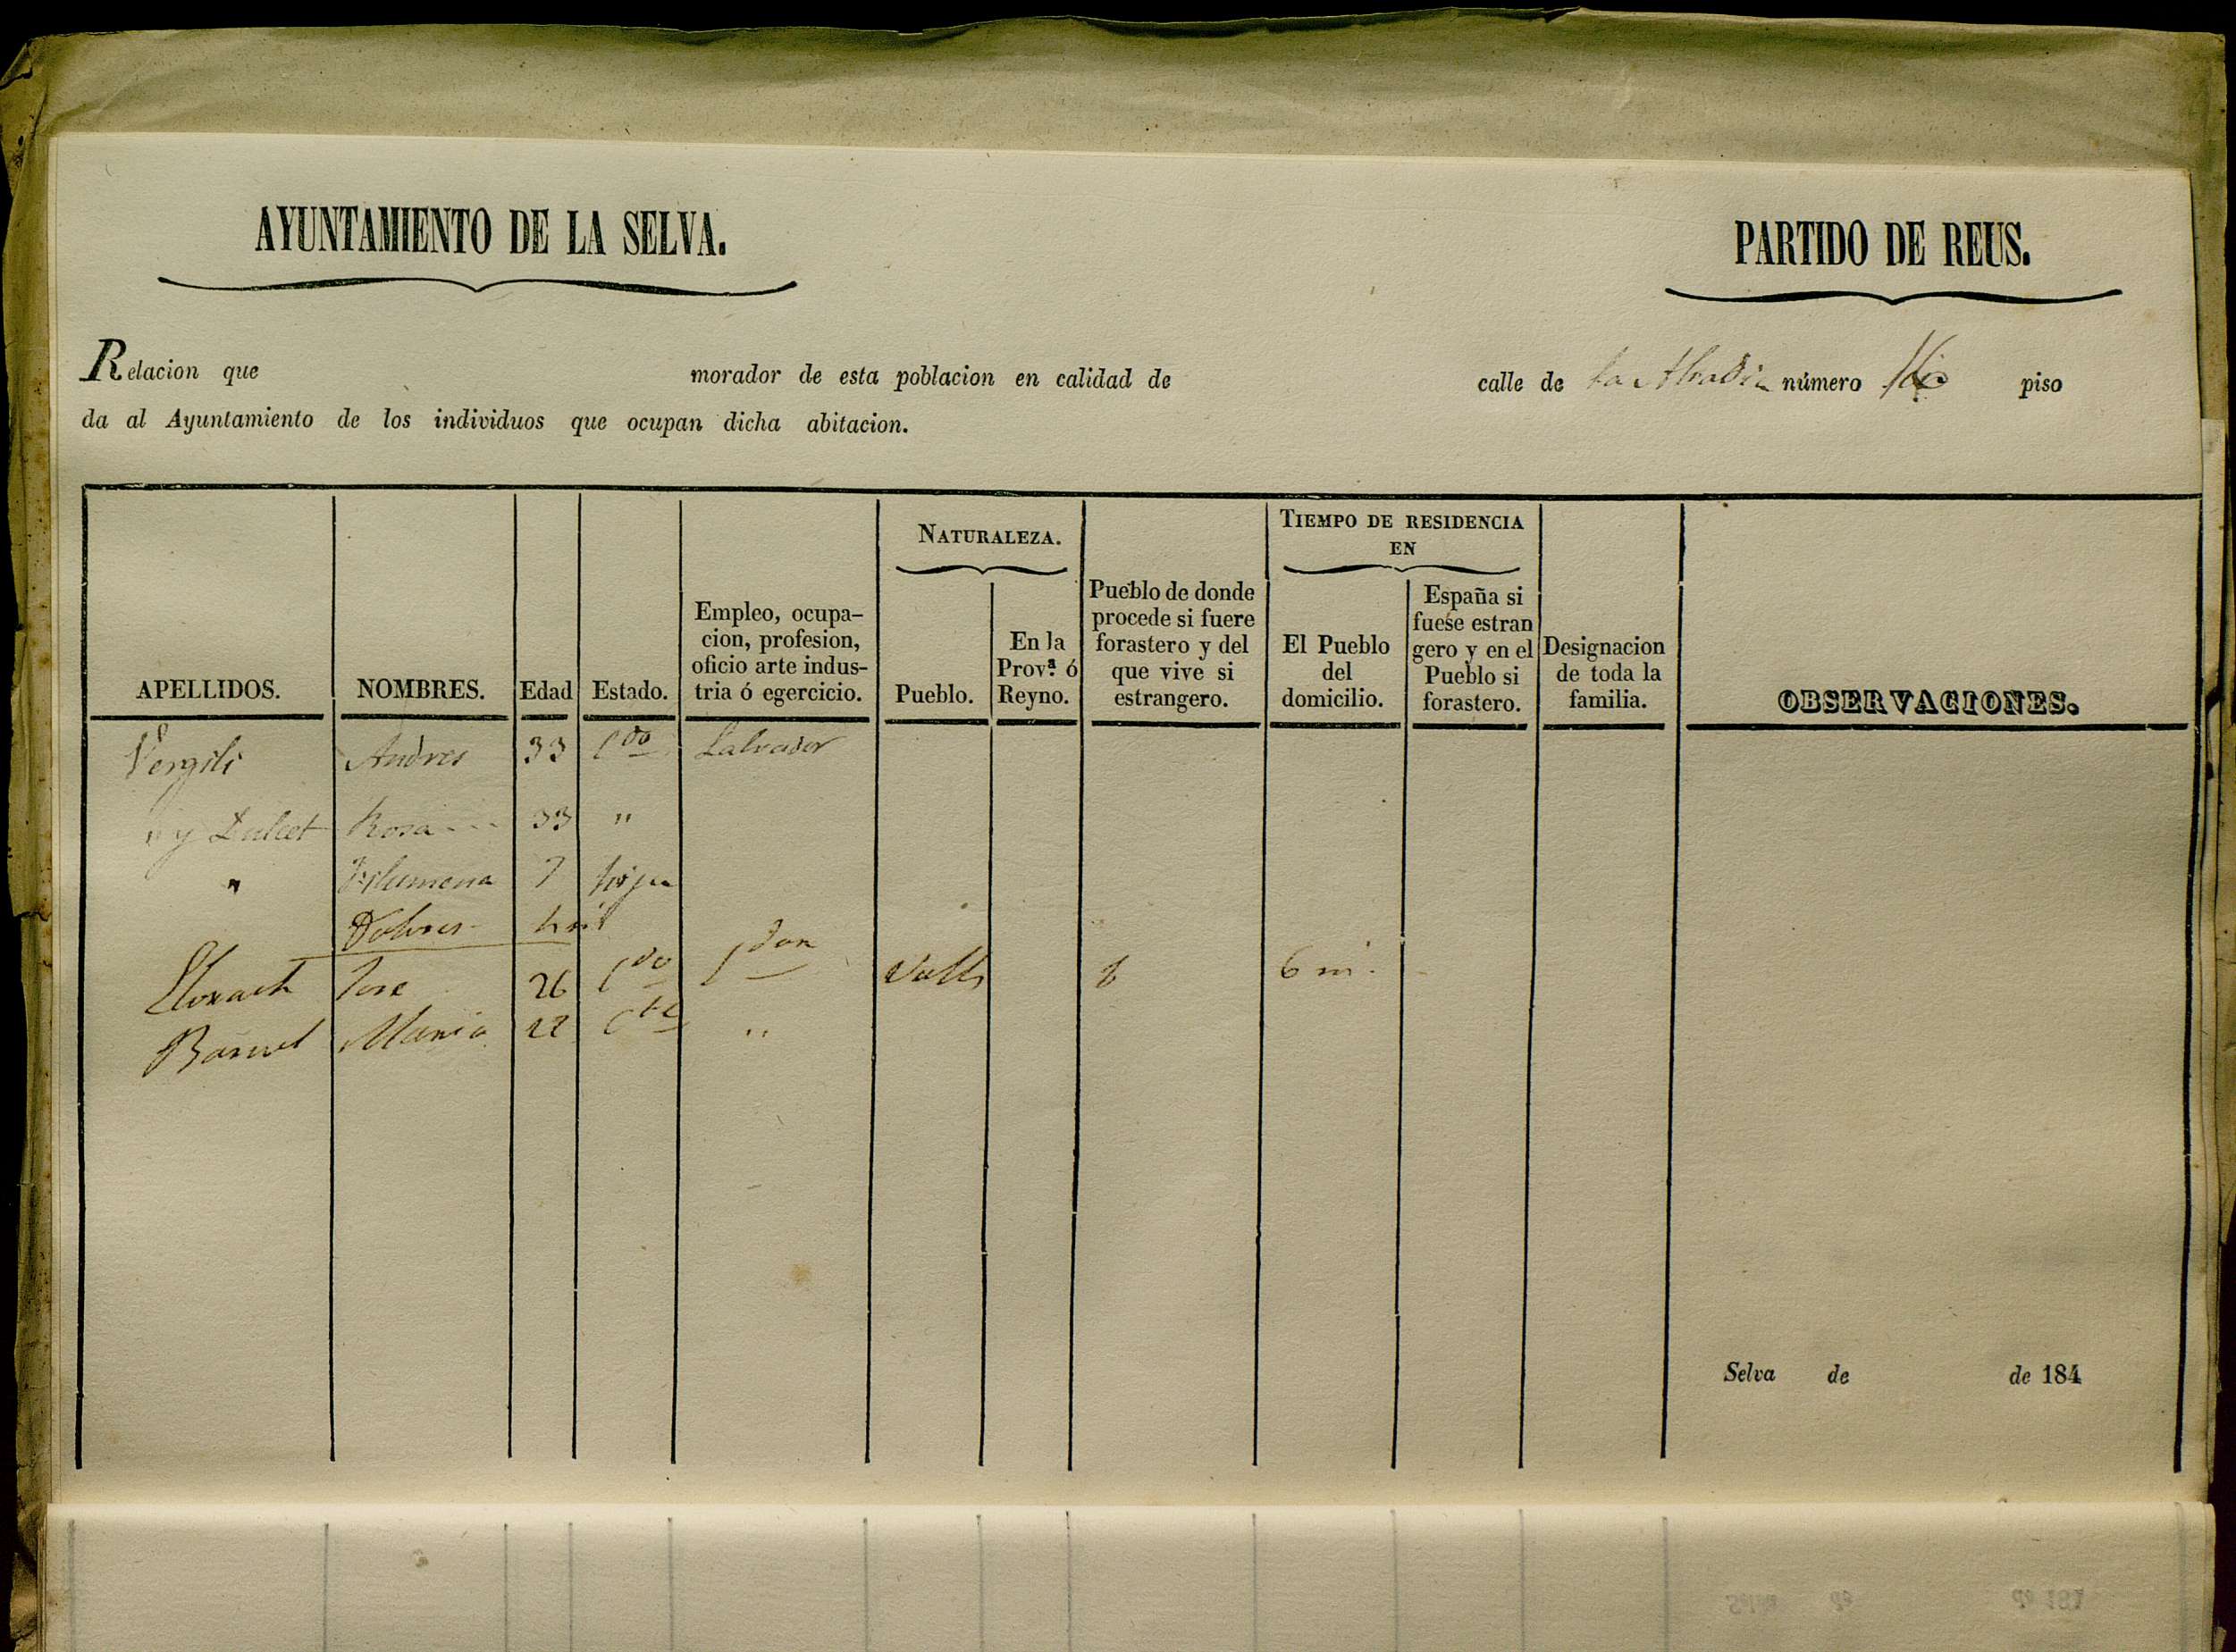 AYUNTAMIENTO DE LA SELVA.
PARTIDO DE REUS.
Relacion que morador de esta poblacion en calidad de calle de La Abadia número piso
da al Ayuntamiento de los individuos que ocupan dicha abitacion.
NATURALEZA.
TIEMPO DE RESIDENCIA
EN
APELLIDOS.
NOMBRES.
Edad
Estado.
Empleo, ocupa-
cion, profesion,
oficio arte indus-
tria ó egercicio.
Pueblo.
En la
Prov.ª ó
Reyno.
Pueblo de donde
procede si fuere
forastero y del
que vive si
estrangero.
El Pueblo
del
domicilio.
España si
fuese estran
gero y en el
Pueblo si
forastero.
Designacion
de toda la
familia.
OBSERVACIONES.
Vergili Andres 33 Cdo Labrador
" y Dulcet Rosa 33 "
" Filumena 7 hija
Dolores
Llorach Jose 26 Cdo Valls 6 m.
Maria 22 "
Selva de de 184